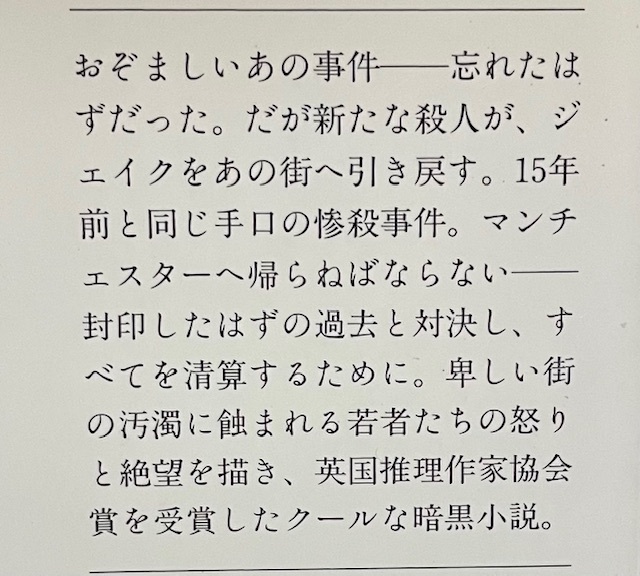 おぞましいあの事件――忘れたは
ずだった。だが新たな殺人が、ジ
ェイクをあの街へ引き戻す。15年
前と同じ手口の惨殺事件。マンチ
ェスターへ帰らねばならない――
封印したはずの過去と対決し、す
べてを清算するために。卑しい街
の汚濁に蝕まれる若者たちの怒り
と絶望を描き、英国推理作家協会
賞を受賞したクールな暗黒小説。